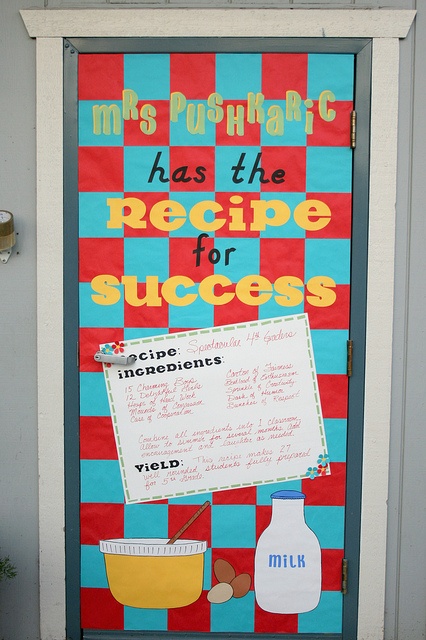 MRS PUSHKARIC
has the
Recipe
for
Success
Recipe: Spectacular 4th Graders
Ingredients:
15 Charming Boys
12 Delightful Girls
Heaps of Hard Work
Morsels of Compassion
Case of Cooperation
Carton of Fairness
Sprinkle of Creativity
Dash of Humor
Bunches of Respect
Combine all ingredients into 1 classroom
allow to simmer for several months add
encouragement and laughter as needed.
Yield: This recipe makes 27
well rounded students fully prepared
for 5th Grade.
MILK